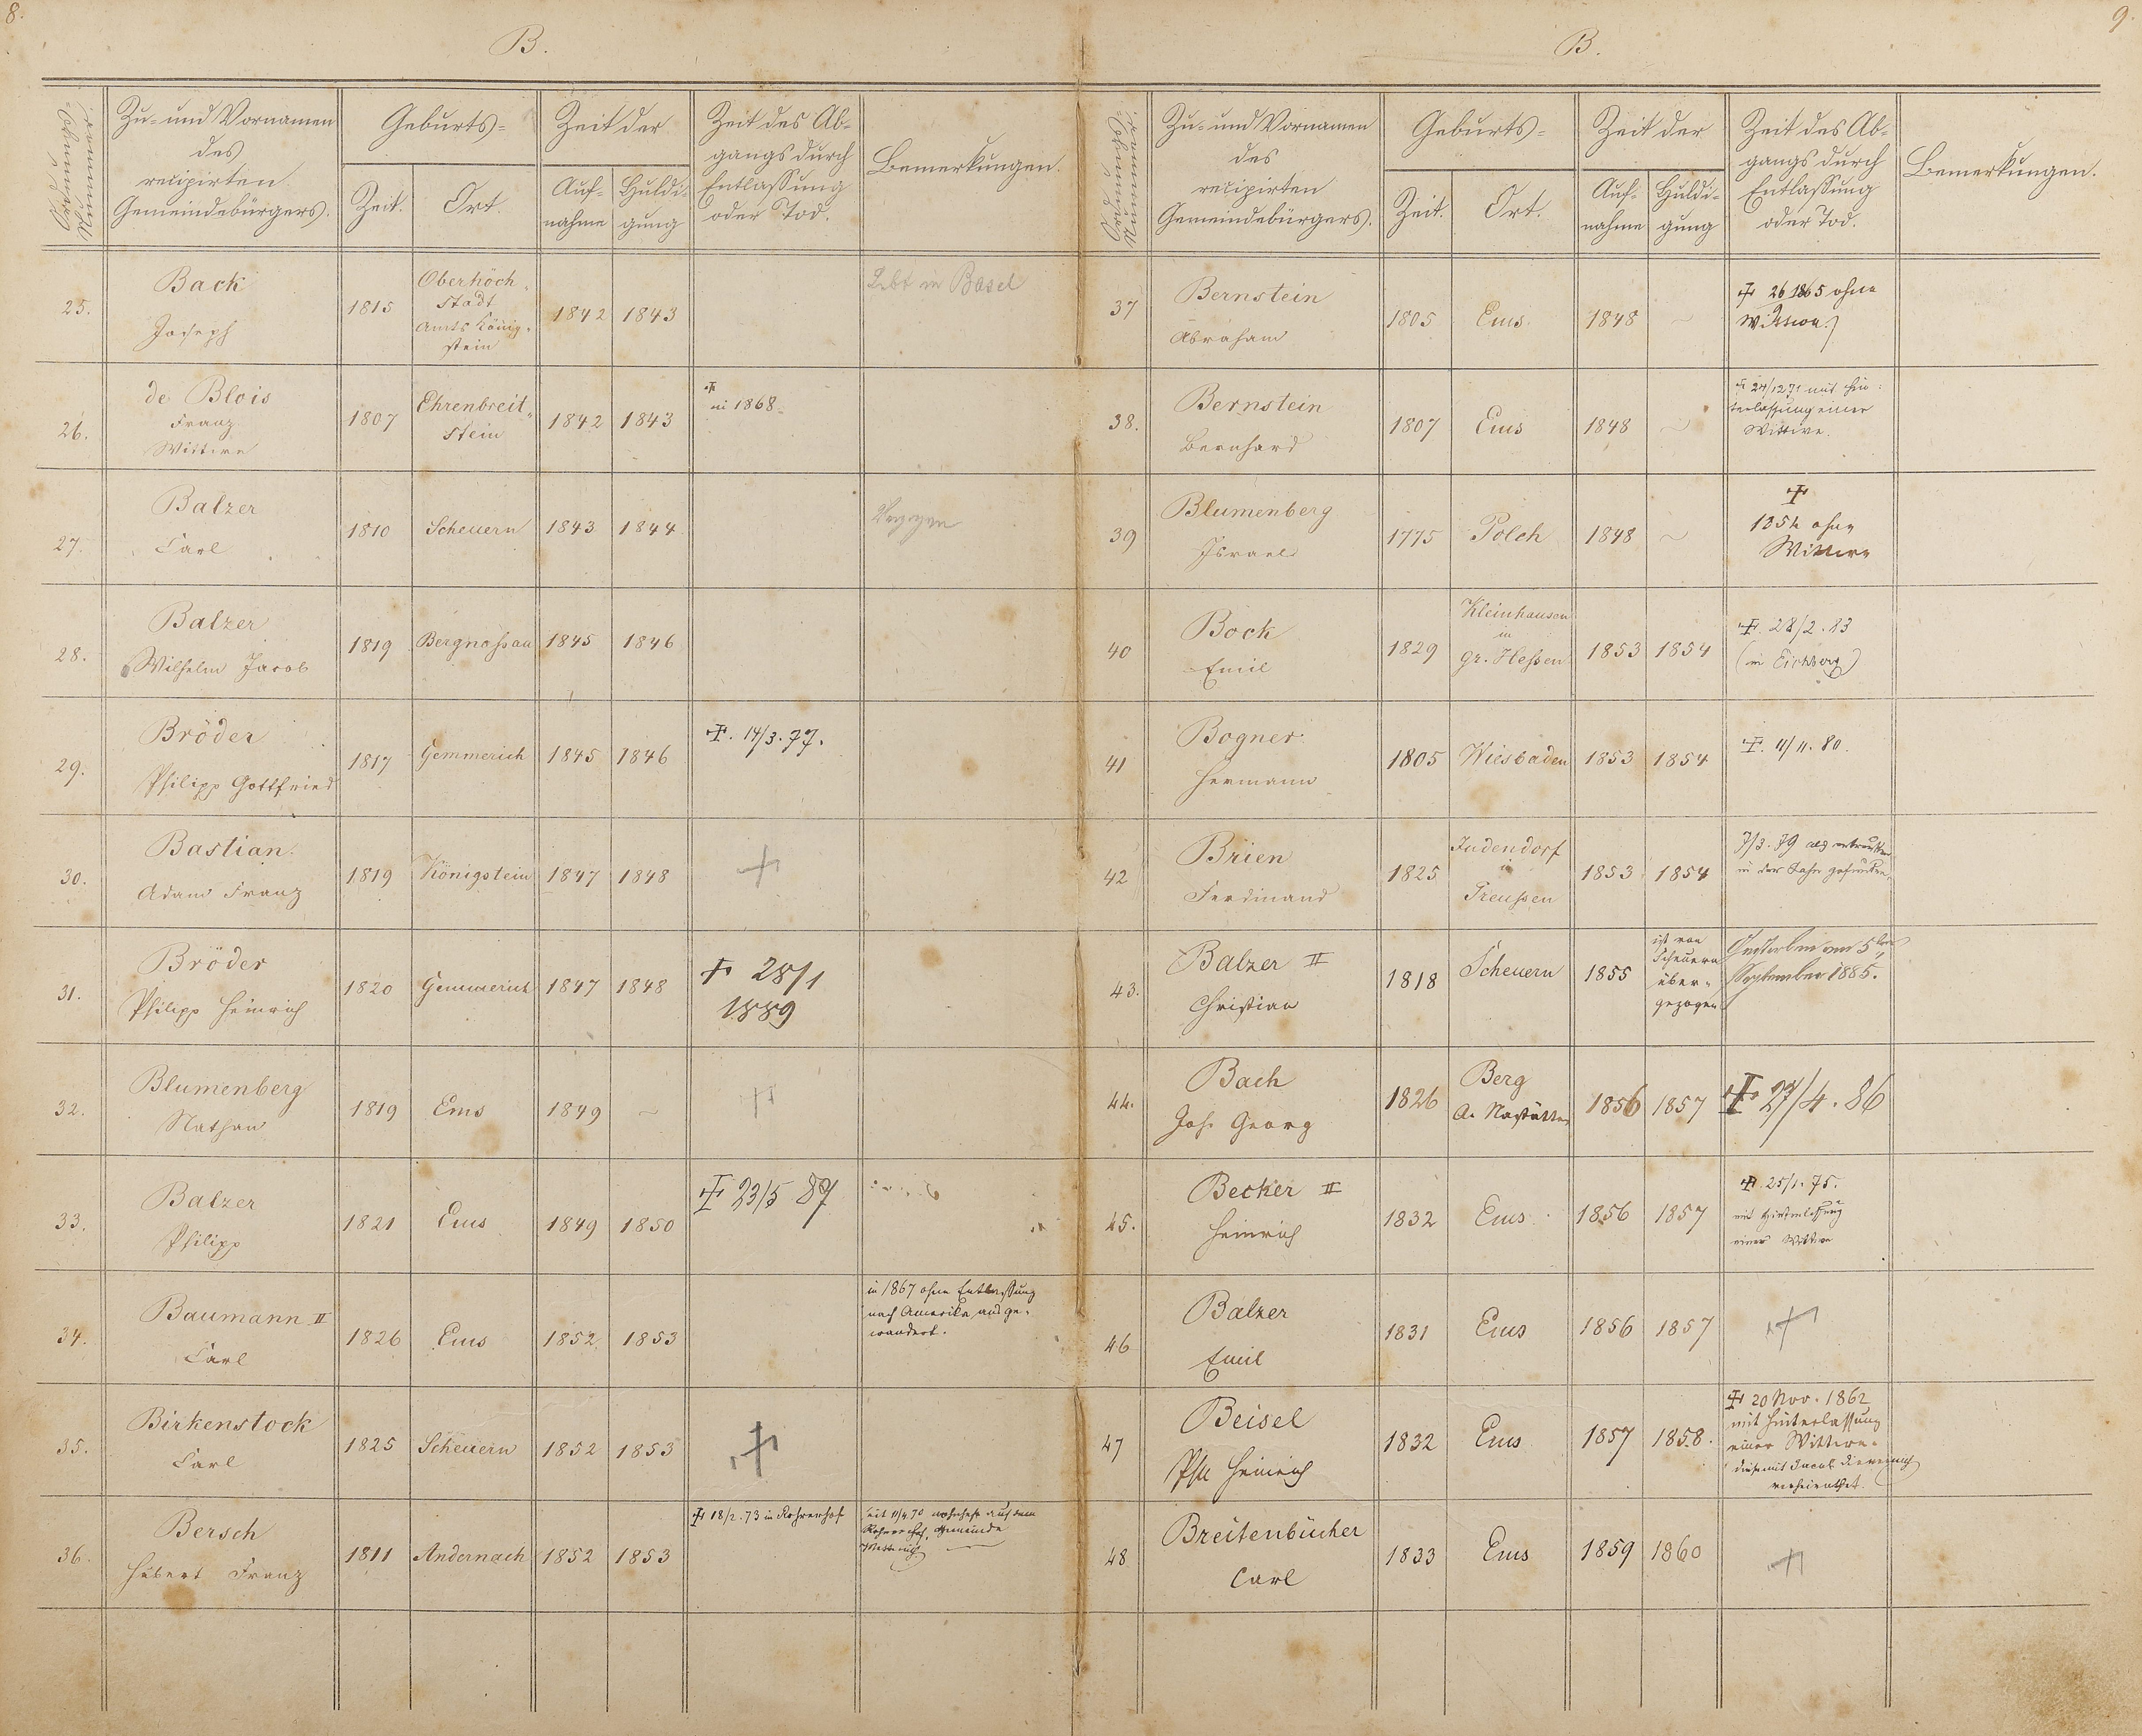 8.
B.
Ordnungs-
Nummer.
Zu- und Vornamen
des
recipirten
Gemeindebürgers.
Geburts-
Zeit.
Ort.
Zeit der
Auf-
nahme
Huldi-
gung
Zeit des Ab-
gangs durch
Entlassung
oder Tod.
Bemerkungen.
25.
Back
Joseph
1815
Oberhöch-
stadt
Amts König-
stein
1842
1843
Lebt in Basel
26.
de Blois
Franz
Wittwe
1807
Ehrenbreit-
stein
1842
1843
in 1868.
27.
Balzer
Carl
1810
Scheuern
1843
1844
28.
Balzer
Wilhelm Jacob
1819
Bergnassau
1845
1846
29.
Bröder
Philipp Gottfried
1817
Gemmerich
1845
1846
✝. 14/3. 77.
30.
Bastian.
Adam Franz
1819
Königstein
1847
1848
✝
31.
Bröder
Philipp Heinrich
1820
Gemmerich
1847
1848
✝ 28/1
1889
32.
Blumenberg
Nathan
1819
Ems
1849
~
✝
33.
Balzer
Philipp
1821
Ems
1849
1850
✝ 23/5 87
34.
Baumann II
Carl
1826
Ems
1852
1853
in 1867 ohne Entlassung
nach Amerika ausge-
wandert.
35.
Birkenstock
Carl
1825
Scheuern
1852
1853
✝
36.
Bersch
Hubert Franz
1811
Andernach
1852
1853
✝ 18/2. 73 in Rohrerhof
seit 11/4 70 wohnhaft auf dem
Gemeinde
9.
B.
Ordnungs-
Nummer.
Zu- und Vornamen
des
recipirten
Gemeindebürgers.
Geburts-
Zeit.
Ort.
Zeit der
Auf-
nahme
Huldi-
gung
Zeit des Ab-
gangs durch
Entlassung
oder Tod.
Bemerkungen.
37
Bernstein
Abraham
1805
Ems.
1848
~
✝ 1865 ohne
Wittwe
38.
Bernstein
Bernhard
1807
Ems
1848
~
✝ 24/12 71 mit Hin-
terlassung einer
Wittwe.
39
Blumenberg
Israel
1775
Polch
1848
~
✝
ohne
Wittwe
40
Bock
Emil
1829
Kleinhausen
in
Gr. Hessen
1853
1854
✝. 28/2. 83
(in Eichberg)
41
Bogner
Hermann
1805
Wiesbaden
1853
1854
✝. 11/11. 80.
42
Brien
Ferdinand
1825
Judendorf
in
Preussen
1853
1854
7/3. 79 als ertrunken
in der Lahn gefunden.
43.
Balzer II
Christian
1818
Scheuern
1855
ist von
Scheuern
über-
gezogen
Gestorben am 5ten
September 1885.
44.
Bach
Joh. Georg
1826
Berg
A. Nastätten
1856
1857
✝ 27/4. 86
45.
Becker II
Heinrich
1832
Ems
1856
1857
✝. 25/1. 75.
mit Hinterlassung
einer Wittwe
46
Balzer
Emil
1831
Ems
1856
1857
✝
47
Beisel
Phil Heinrich
1832
Ems
1857
1858.
✝ 20 Nov. 1862
mit Hinterlassung
einer Wittwe.
diese mit Jacob
verheirathet.
48
Breitenbücher
Carl
1833
Ems
1859
1860
✝